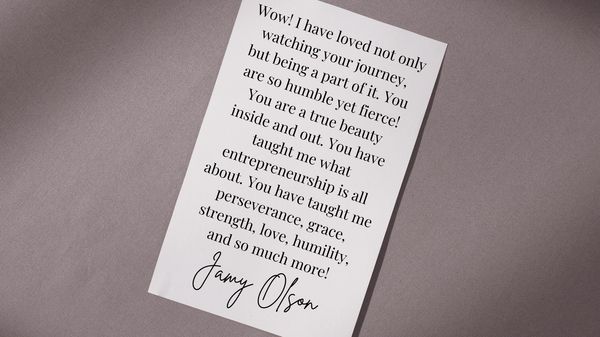 Wow! I have loved not only
watching your journey,
but being a part of it. You
are so humble yet fierce!
You are a true beauty
inside and out. You have
taught me what
entrepreneurship is all
about. You have taught me
perseverance, grace,
strength, love, humility,
and so much more!
Jamy Olson